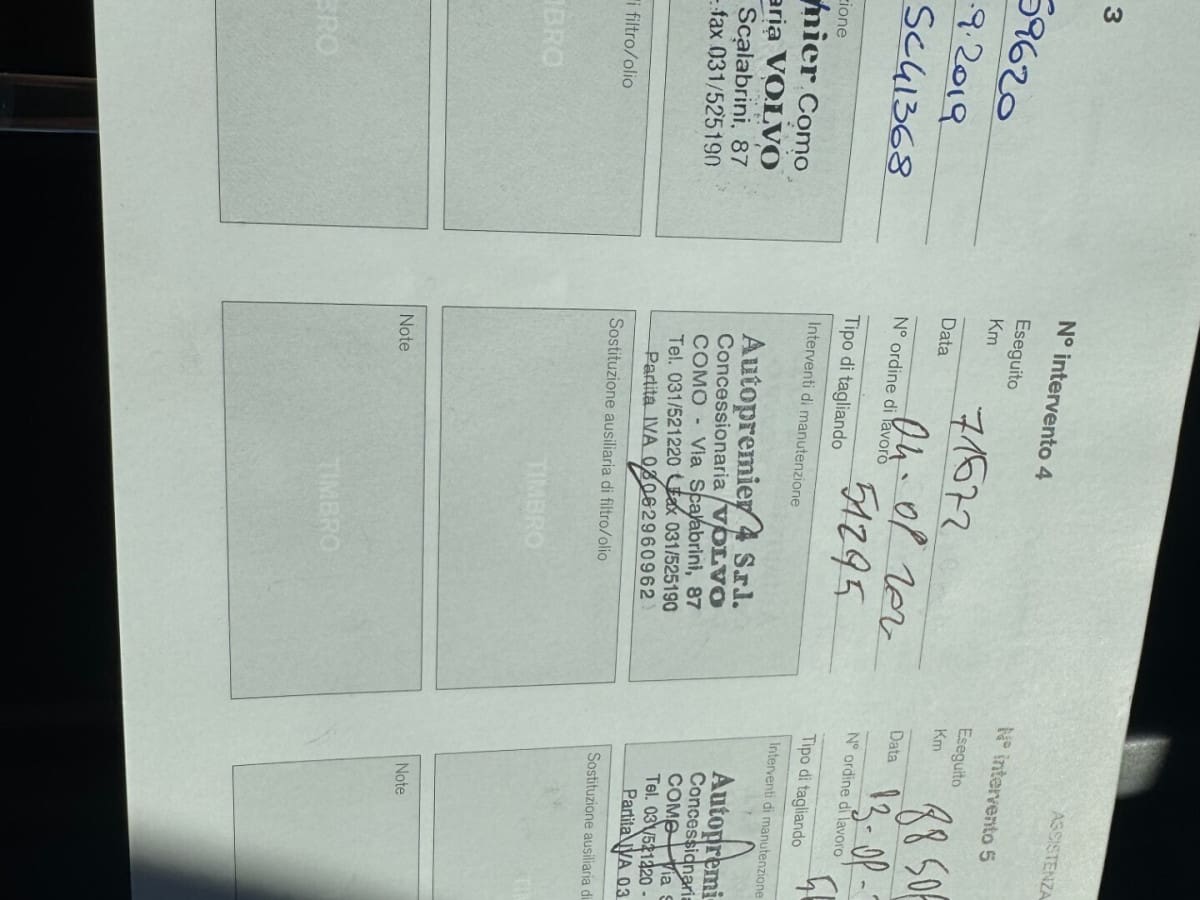 3
59620
.9.2019
SC41368
zione
nier Como
aria VOLVO
Scalabrini, 87
fax 031/525190
di filtro/olio
TIMBRO
TIMBRO
N° intervento 4
Eseguito
Km 71522
Data
N° ordine di lavoro
Tipo di tagliando 51295
Interventi di manutenzione
Autopremier 4 S.r.l.
Concessionaria VOLVO
COMO - Via Scalabrini, 87
Tel. 031/521220 Fax 031/525190
Partita IVA 03062960962
Sostituzione ausiliaria di filtro/olio
TIMBRO
Note
TIMBRO
ASSISTENZA
N° intervento 5
Eseguito
Km
Data
N° ordine di lavoro
Tipo di tagliando
Interventi di manutenzione
Autopremi
Concessionaria
COMO - Via S
Tel. 031/521220 -
Partita IVA 03
Sostituzione ausiliaria di
Note